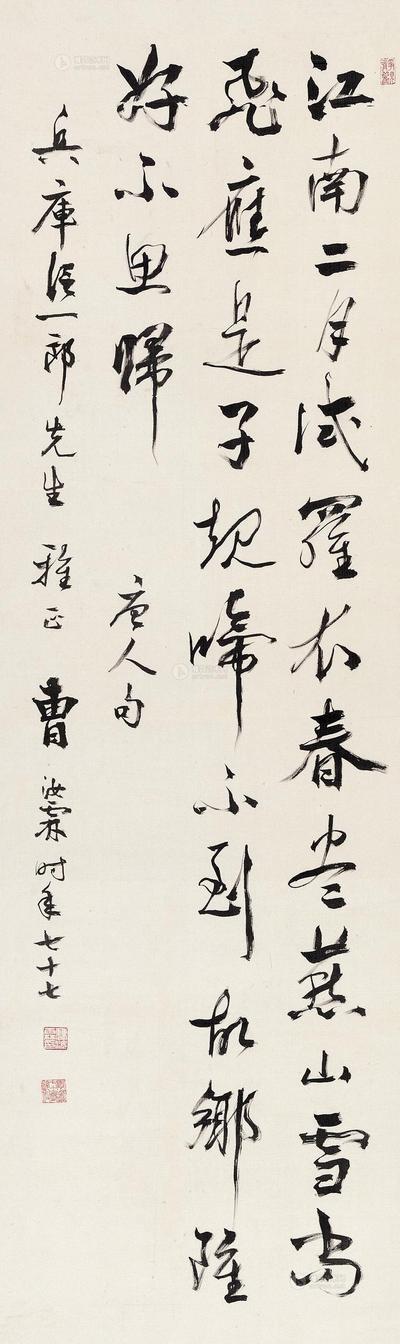 江南二月試羅衣春盡燕山雪尚
飛應是子規啼不到故鄉雖
好不思歸
唐人句
兵庫信一郎先生 雅正 曹汝霖時年七十七